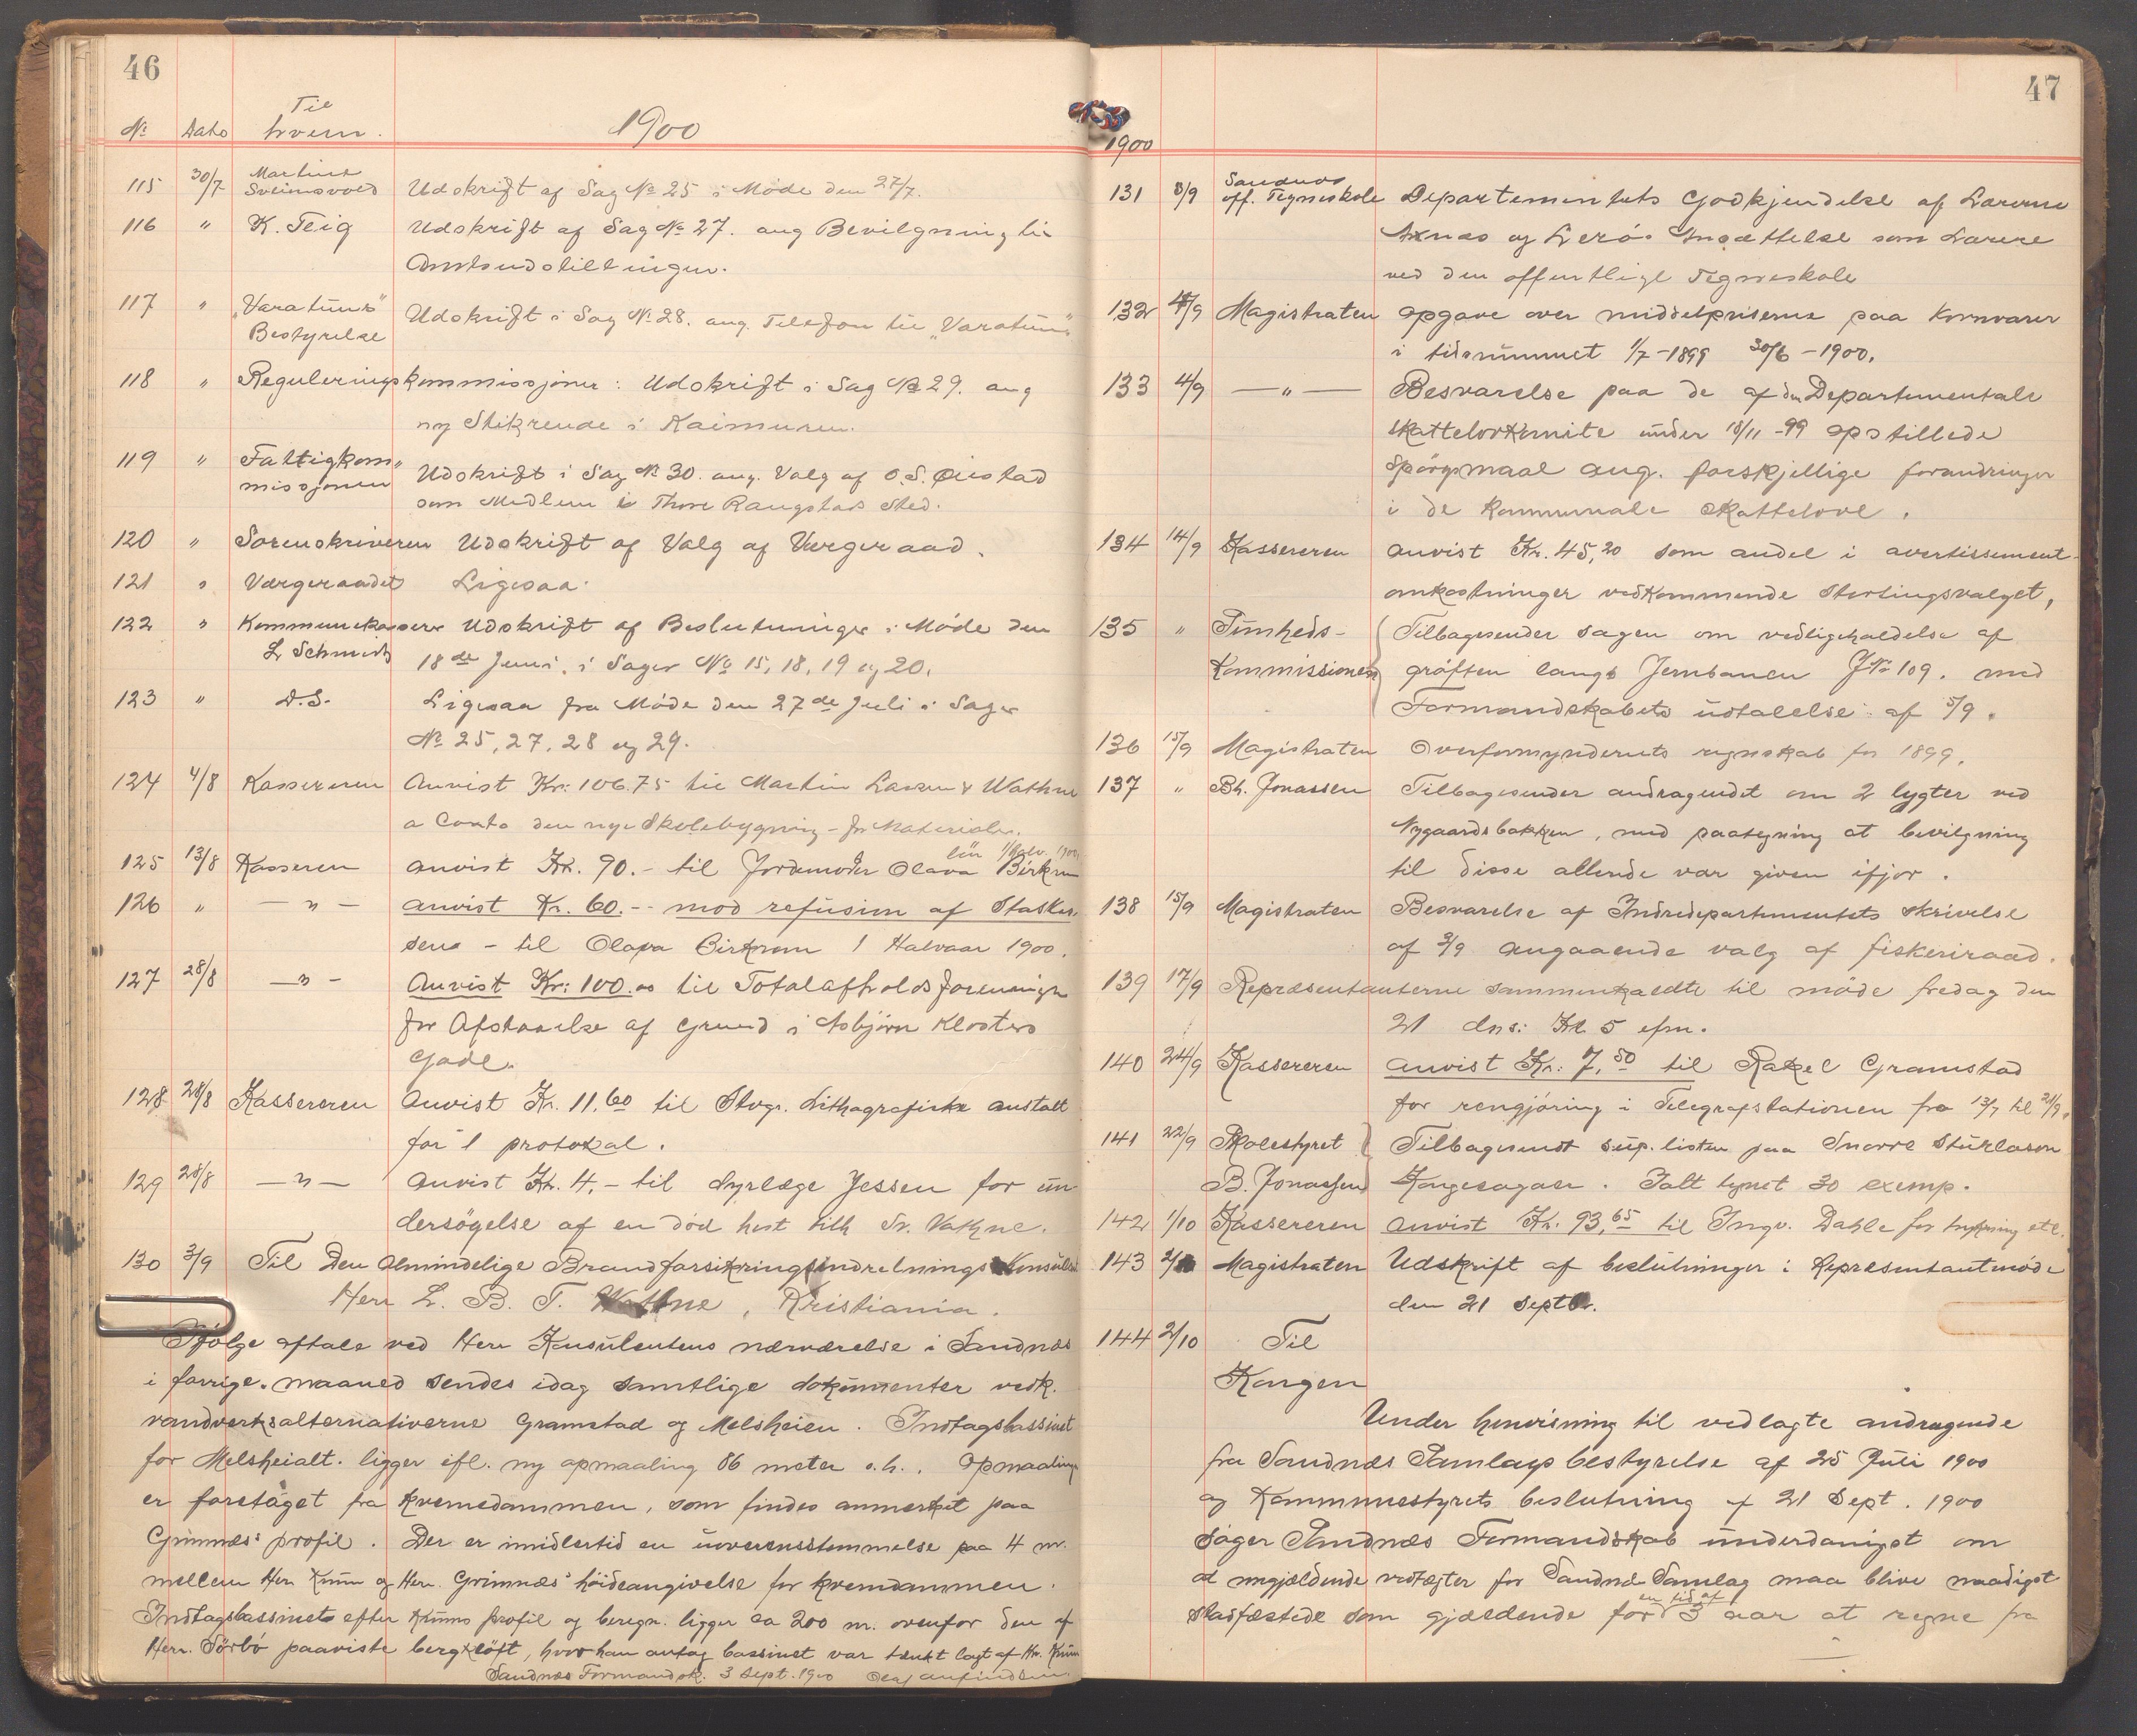 46
№ Dato Til hvem. 1900
115 30/7 Martines Sveinsvold Udskrift af Sag № 25 i Møde den 27/7.
116 " K. Teig Udskrift af Sag № 27. ang Bevilgning til
Amtsudstillingen.
117 " „Varatuns" Bestyrelse Udskrift i Sag № 28. ang. Telefon til „Varatun"
118 " Reguleringskommissjonen: Udskrift i Sag № 29. ang
ny Stikrende i Kaimuren.
119 " Fattigkommissjonen Udskrift i Sag № 30. ang. Valg af O. S. Øiestad
som Medlem i Thore Raugstads Sted.
120 " Sorenskriveren Udskrift af Valg af Vergeraad.
121 " Vergeraadet Ligesaa.
122 " Kommunekasserer Udskrift af Beslutninger i Møde den
L Schmidt 18de Juni. i Sager № 15, 18, 19 og 20.
123 " D.S. Ligesaa fra Møde den 27de Juli i Sager
№ 25, 27, 28 og 29.
124 4/8 Kassereren Anvist Kr: 106.75 til Martin Larsen & Wathne
a Conto den nye Skolebygning - for Materialer.
125 13/8 Kasseren anvist Kr. 90.- til Jordemoder Olava Birkrem
løn 1 halv. 1900.
126 " — " — anvist Kr. 60.-- mod refusion af Statskas-
sens - til Olava Birkrem 1 Halvaar 1900.
127 28/8 — " — Anvist Kr: 100.00 til Totalafholdsforeningen
for Afstaaelse af Grund i Asbjörn Klosters
Gade.
128 28/8 Kassereren Anvist Kr. 11.60 til Stvgr. Lithografiske anstalt
for 1 protokol.
129 28/8 — " — Anvist Kr. 4.- til dyrlæge Jessen for un-
dersögelse af en död hest tilh Sv. Vathne.
130 3/9 Til Den Almindelige Brandforsikringsindretnings Konsulent
Herr L. B. T. Wathne, Kristiania.
Ifölge aftale ved Herr Konsulentens nærværelse i Sandnæs
i forrige maaned sendes idag samtlige dokumenter vedk.
vandverksalternativerne Gramstad og Melsheien. Indtagsbassinet
for Melsheialt. ligger ifl. ny opmaaling 86 meter o.h.. Opmaalingen
er foretaget fra kvernedammen, som findes anmerket paa
Grimnæs' profil. Der er imidlertid en uoverensstemmelse paa 4 m.
mellem Herr Kum og Herr Grimnæs' höideangivelse for kverndammen.
Indtagsbassinets efter Kums profil og beregn. ligger ca 200 m. ovenfor den af
Herr. Törbö paaviste bergklöft, hvor han antog bassinet var tænkt lagt af Hr. Kum
Sandnæs Formandsk. 3 Sept. 1900 Olaf Anfindsen.
47
1900
131 8/9 Sandnes off. Tegneskole Departementets Godkjendelse af Lærerne
Axnæs og Lerös Ansættelse som Lærere
ved den offentlige Tegneskole
132 4/9 Magistraten Opgave over middelpriserne paa kornvarer
i tidsrummet 1/7-1899 30/6-1900.
133 4/9 — " — Besvarelse paa de af den Departementale
skattelovkomite under 18/11-99 opstillede
spörgsmaal ang. forskjellige forandringer
i de kommunale skattelove.
134 14/9 Kassereren anvist Kr. 45,20 som andel i avertissement-
omkostninger vedkommende Stortingsvalget,
135 " Sunheds- Tilbagesender sagen om vedligeholdelse af
Kommissionen gröften langs Jernbanen J№ 109. med
Formandskabets udtalelse af 5/9.
136 15/9 Magistraten Overformynderiets regnskab for 1899.
137 " Bh. Jonassen Tilbagesender andragendet om 2 lygter ved
Nygaardsbakken, med paategning at bevilgning
til disse allerede var given ifjor.
138 15/9 Magistraten Besvarelse af Indredepartementets skrivelse
af 3/9 angaaende valg af fiskeriraad.
139 17/9 Repræsentanterne sammenkaldte til möde fredag den
21 dns: Kl 5 efm.
140 24/9 Kassereren anvist Kr: 7.50 til Rakel Gramstad
for rengjöring i Telegrafstationen fra 13/7 til 21/9.
141 22/9 Skolestyret Tilbagesendt sup. listen paa Snorre Sturlason
B. Jonassen Kongesagaer. Ialt tegnet 30 exemp.
142 1/10 Kassereren anvist Kr. 93.65 til Ingv. Dahle for trykning etc.
143 2/10 Magistraten Udskrift af beslutninger i Repræsentantmöde
den 21 Septbr.
144 2/10 Til
Kongen
Under henvisning til vedlagte andragende
fra Sandnæs Samlags bestyrelse af 25 Juli 1900
og Kommunestyrets beslutning af 21 Sept. 1900
söger Sandnæs Formandskab underdanigst om
at omgjældende vedtægter for Sandnæs Samlag maa blive naadigst
stadfæstede som gjældende for en tid af 3 aar at regne fra